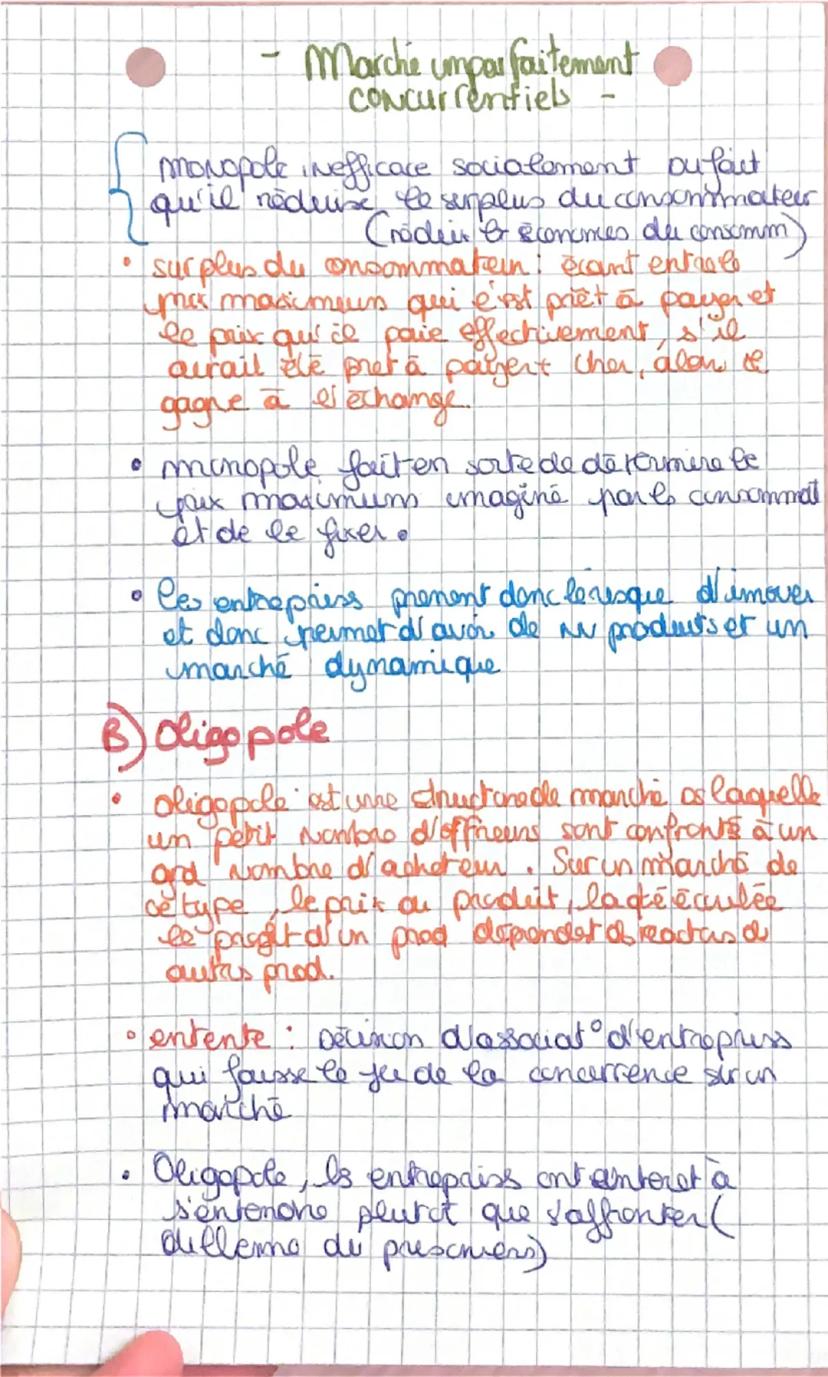 - Marché imparfaitement
concurrentiels -
monopole inefficace socialement du fait
qu'il réduise le surplus du consommateur
(réduir les économies du consomm)
• surplus du consommateur : écart entre le
prix maximum qui é'st prêt à payer et
le prix qu'il paie effectivement, s'il
aurait été pret à payer + cher, alors il
gagne à l'échange.
• monopole fait en sorte de détermine le
prix maximum imaginé par les consommat
et de le fixer.
• les entreprises prennent donc le risque d'innover
et donc permet d'avoir de nv produits et un
marché dynamique
B) Oligopole
• oligopole est une structure de marché ds laquelle
un petit nombre d'offreurs sont confrontés à un
grd nombre d'acheteur. Sur un marché de
ce type, le prix du produit, la qté écoulée
le profit d'un prod dépendent ds réactns d
autrs prod.
• entente : Décision d'associat° d'entreprises
qui fausse le jeu de la concurrence sur un
marché
• Oligopole, ls entreprises ont intéret à
s'entendre plutôt que s'affronter (
dillemme du prisonniers)